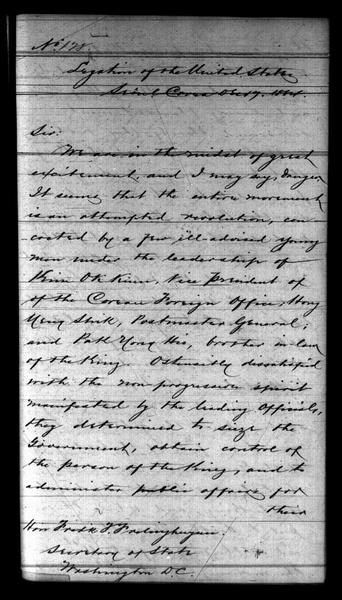 No 178.
Legation of the United States
Seoul Corea Dec 17. 1884.
Sir:
We are in the midst of great
excitement, and I may say, danger.
It seems that the entire movement
is an attempted revolution, con-
cocted by a few ill-advised young
men under the leadership of
Kim Ok Kiun, Vice President of
of the Corean Foreign Office, Hong
Yeng Shik, Postmaster General;
and Pak Yong Hio, brother-in-law
of the King. Ostensibly dissatisfied
with the non-progressive spirit
manifested by the leading Officials,
they determined to seize the
Government, obtain control of
the person of the King, and to
administer public affairs for
their
Hon Fredk T. Frelinghuysen.
Secretary of State
Washington D.C.